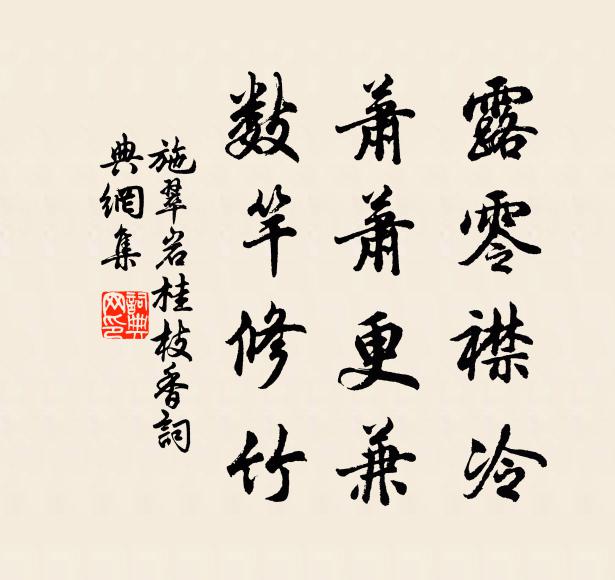 露零襟冷
蕭蕭更兼
数竿修竹
施翠岩桂枝香詞
典網集
詞典网印